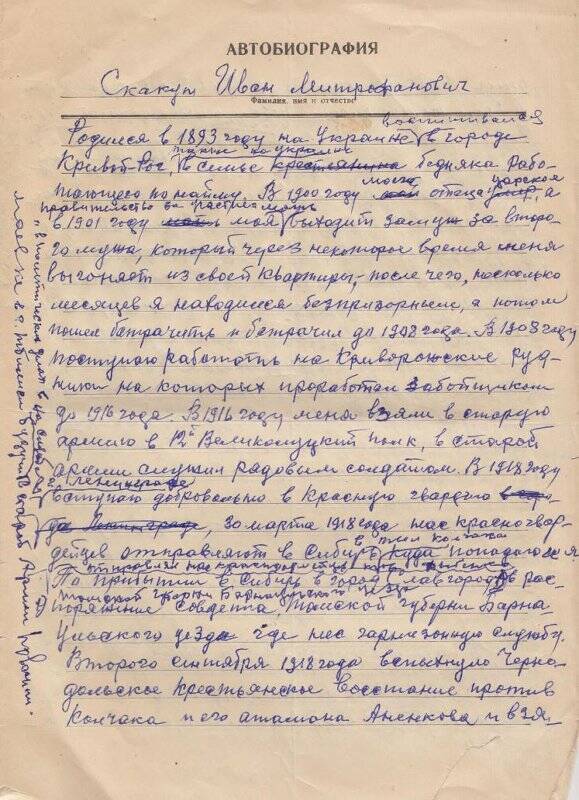 АВТОБИОГРАФИЯ
Скакун Иван Митрофанович
Фамилия, имя и отчество
воспитивался
Родился в 1893 году на Украине в городе
Кривой-Рог, в семье крестьянина бедняка рабо-
тающего по найму. В 1900 году мой отец умир, а
моего царское
правительство
в 1901 году мать моя выходит замуж за второ-
го мужа, который через некоторое время меня
выгоняет из своей квартиры, после чего, несколько
месяцев я находился безпризорным, а потом
пошел батрачить и батрачил до 1908 года. В 1908 году
поступаю работать на Криворожские руд-
ники на которых проработал забойщиком
до 1916 года. В 1916 году меня взяли в старую
армию в 12й Великолуцкий полк, в старой
армии служил радовым солдатом. В 1918 году
в Ленинграде
вступаю добровольно в Красную гвардию
Ленинграде, 30 марта 1918 года нас красногвар-
дейцев отправляют в Сибирь куда попадаю и я
в тыл Колчака
По прибытии в Сибирь в город Славгород в рас-
Томской Барнаульского уезда
поряжение Совдепа, Томской губерни Барна
ульского уезда где нес гарнизонную службу.
Второго сентября 1918 года вспыхнуло Черно-
дольское Крестьянское восстание против
Колчака и его атамона Аненкова и взя-